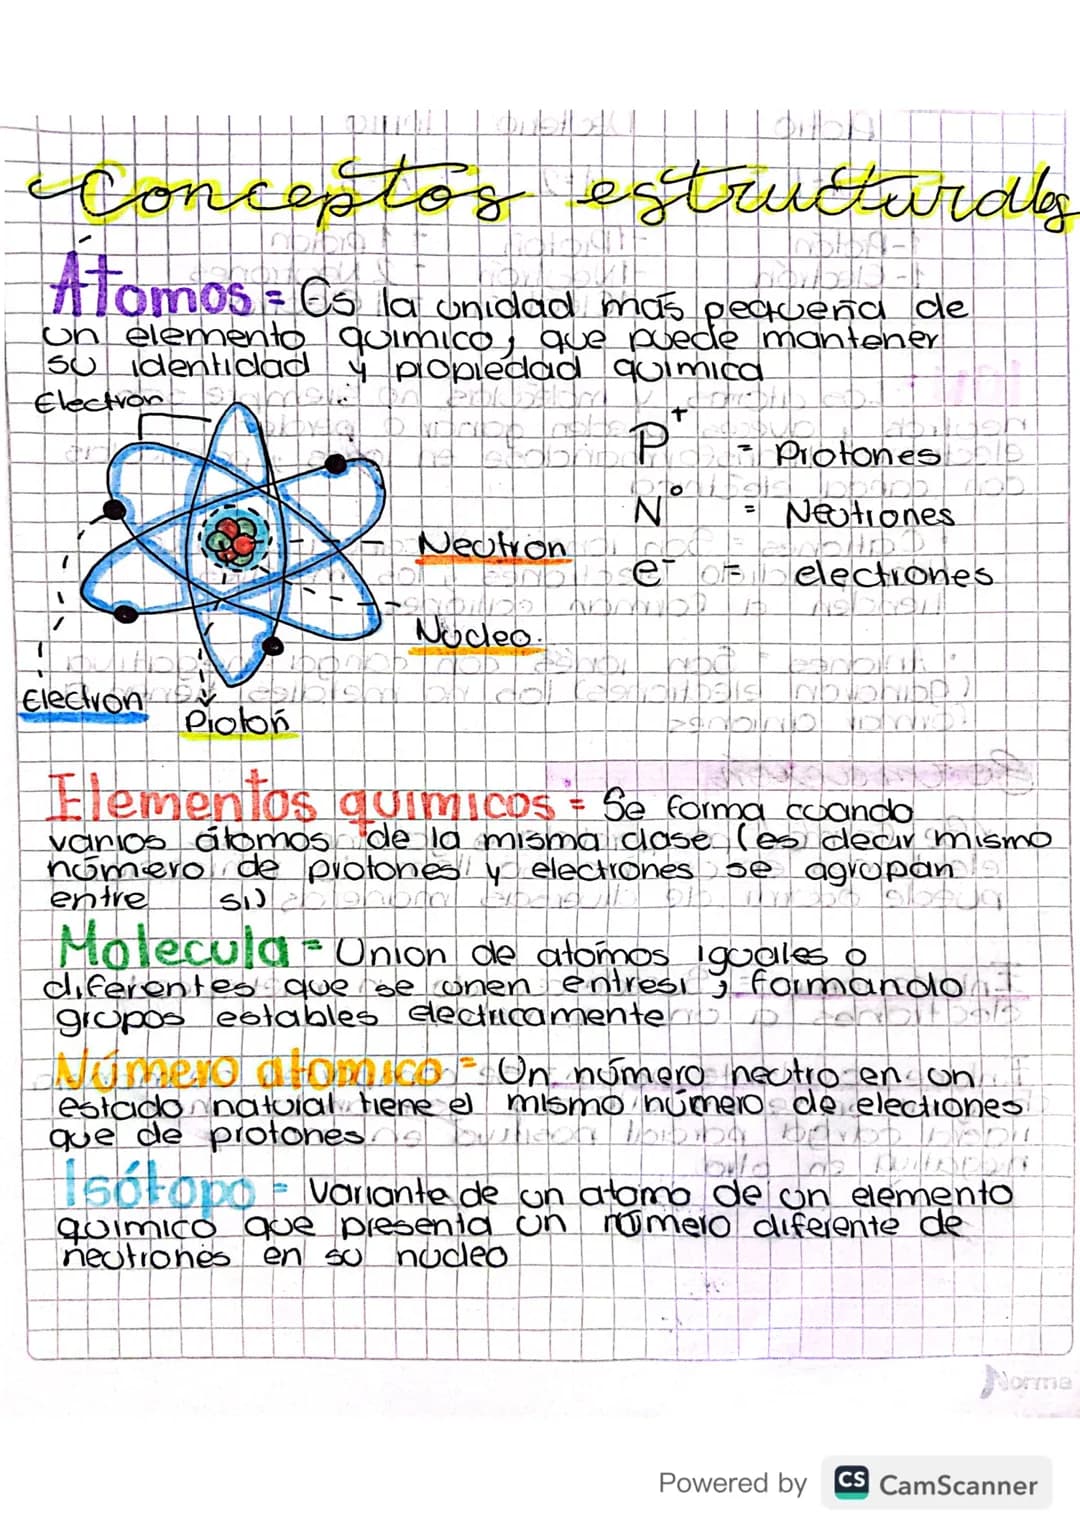 Conceptos estructurales
Átomos = Es la unidad más pequeña de
un elemento químico, que puede mantener
su identidad y propiedad química
Electron
P⁺ = Protones
N° = Neutrones
Neutron
e⁻ = electrones
Núcleo.
Electron
Protón
Elementos quimicos = Se forma cuando
varios átomos de la misma clase (es decir mismo
número de protones y electrones se agrupan
entre sí)
Molecula = Union de atomos iguales o
diferentes que se unen entresi, formando
grupos estables electricamente
Número atomico = Un número neutro en un
estado natural tiene el mismo número de electrones
que de protones
Isótopo = Variante de un atomo de un elemento
quimico que presenta un número diferente de
neutrones en su núcleo
Norma
Powered by CS CamScanner